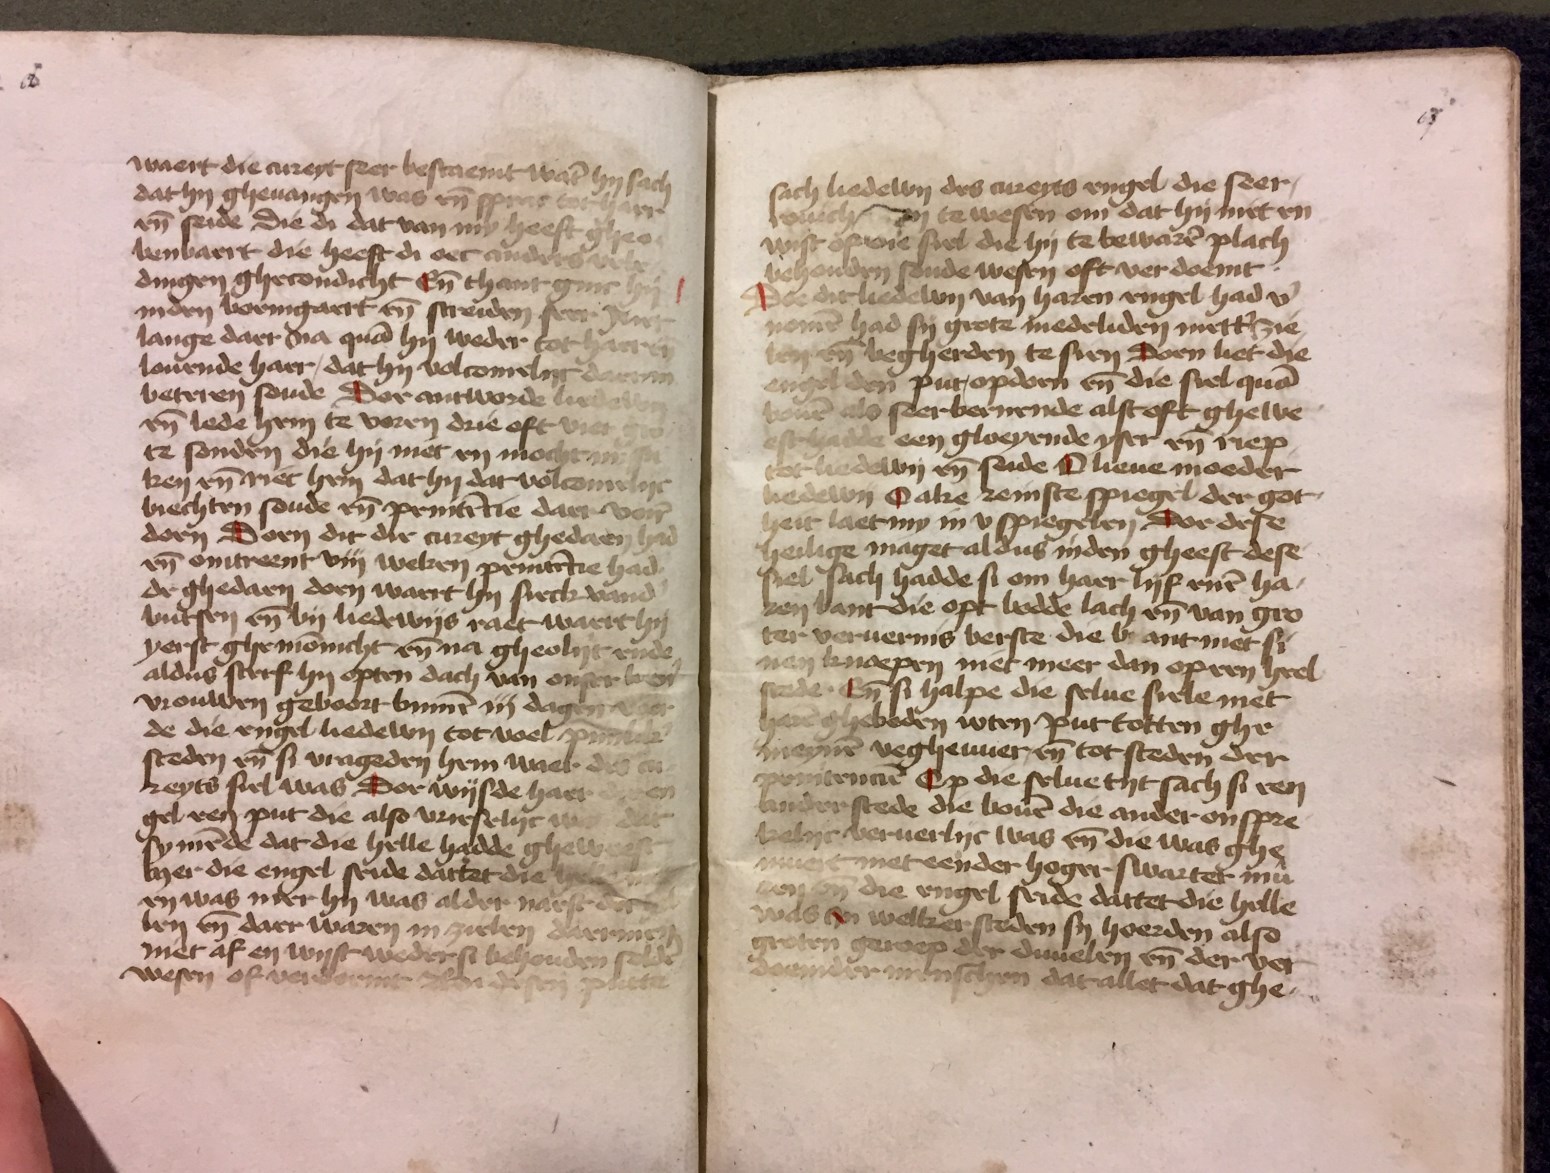 waert die cureyt seer bescaemt wāt hij sach
dat hij ghevangen was eñ sprac tot haer
eñ seide Die di dat van my heeft gheo
benbaert die heeft di oec anders vele
dingen ghecondicht Eñ thant ginc hij
inden boemgaert eñ screiden seer Niet
lange daer na quā hij weder tot haer eñ
lovende haer / dat hij volcomelijc daerin
beteren soude Doe antworde liedewij
eñ lede hem te voren drie oft vier gro
te sonden die hij niet en mocht
ken eñ riet hem dat hij dat volcomelijc
biechten soude eñ penitētie daer voer
doen Doen dit die cureyt ghedaen had
eñ omtreent viij weken penitētie had
de ghedaen doen waert hij sieck vand
eñ bij liedewijs raet waert hij
yerst ghemōnicht eñ na gheolijt ende
aldus sterf hij opten dach van onser
vrouwen geboort binnē iij dagen
de die engel liedewij tot voel
steden eñ si vrageden hem waer des cu
reyts siel was Doe wijsde haer die en
gel een put die also vrieselijc was dat
sy mēde dat die helle hadde gheweest
die engel seide dattet die
en was mer hij was alder naest der hel
len eñ daer waren in zielen daermen
niet af en wijst weder si behouden soldē
wesen of verdoemt desen putte
sach liedewij des cureyts engel die seer
te wesen om dat hij niet en
wist of die siel die hij te bewarē plach
behouden soude wesen oft verdoemt
Doe dit liedewij van haren engel had v
nomē had sij grote medeliden mett zie
len eñ begherden te sien Doen liet die
engel den put opdoen eñ die siel quā
bovē als seer bernende alst oft ghewe
est hadde een gloeyende yser eñ riep
tot liedewij eñ seide O lieve moeder
liedewij O alre reinste spiegel der got
heit laet my in v spiegelen Doe dese
heilige maget aldus inden gheest dese
siel sach hadde si om haer lijf enē ha
ren bant die opt bedde lach eñ van gro
ter ververnis berste die bant met si
nen knoepen niet meer dan op een heel
stede Eñ si halpe die selve siele met
harē ghebeden wten put totten ghe
meynē vegheuuer eñ tot steden der
penitenciē Op die selve tijt sach si een
ander stede die bovē die ander onspre
kelijcververlijc was eñ die was ghe
muert met eender hoger swarter mu
ren eñ die engel seide dattet die helle
was In welker steden sij hoerden also
groten geroep der duvelen eñ der ver
doemder menschen dat allet dat ghe